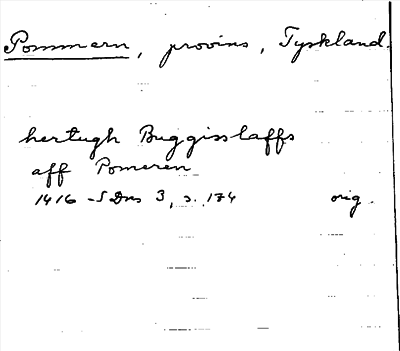 Pommern, provins, Tyskland.
hertugh Buggisslaffs
aff Pomeren
1416 SDns 3, s. 174 orig.